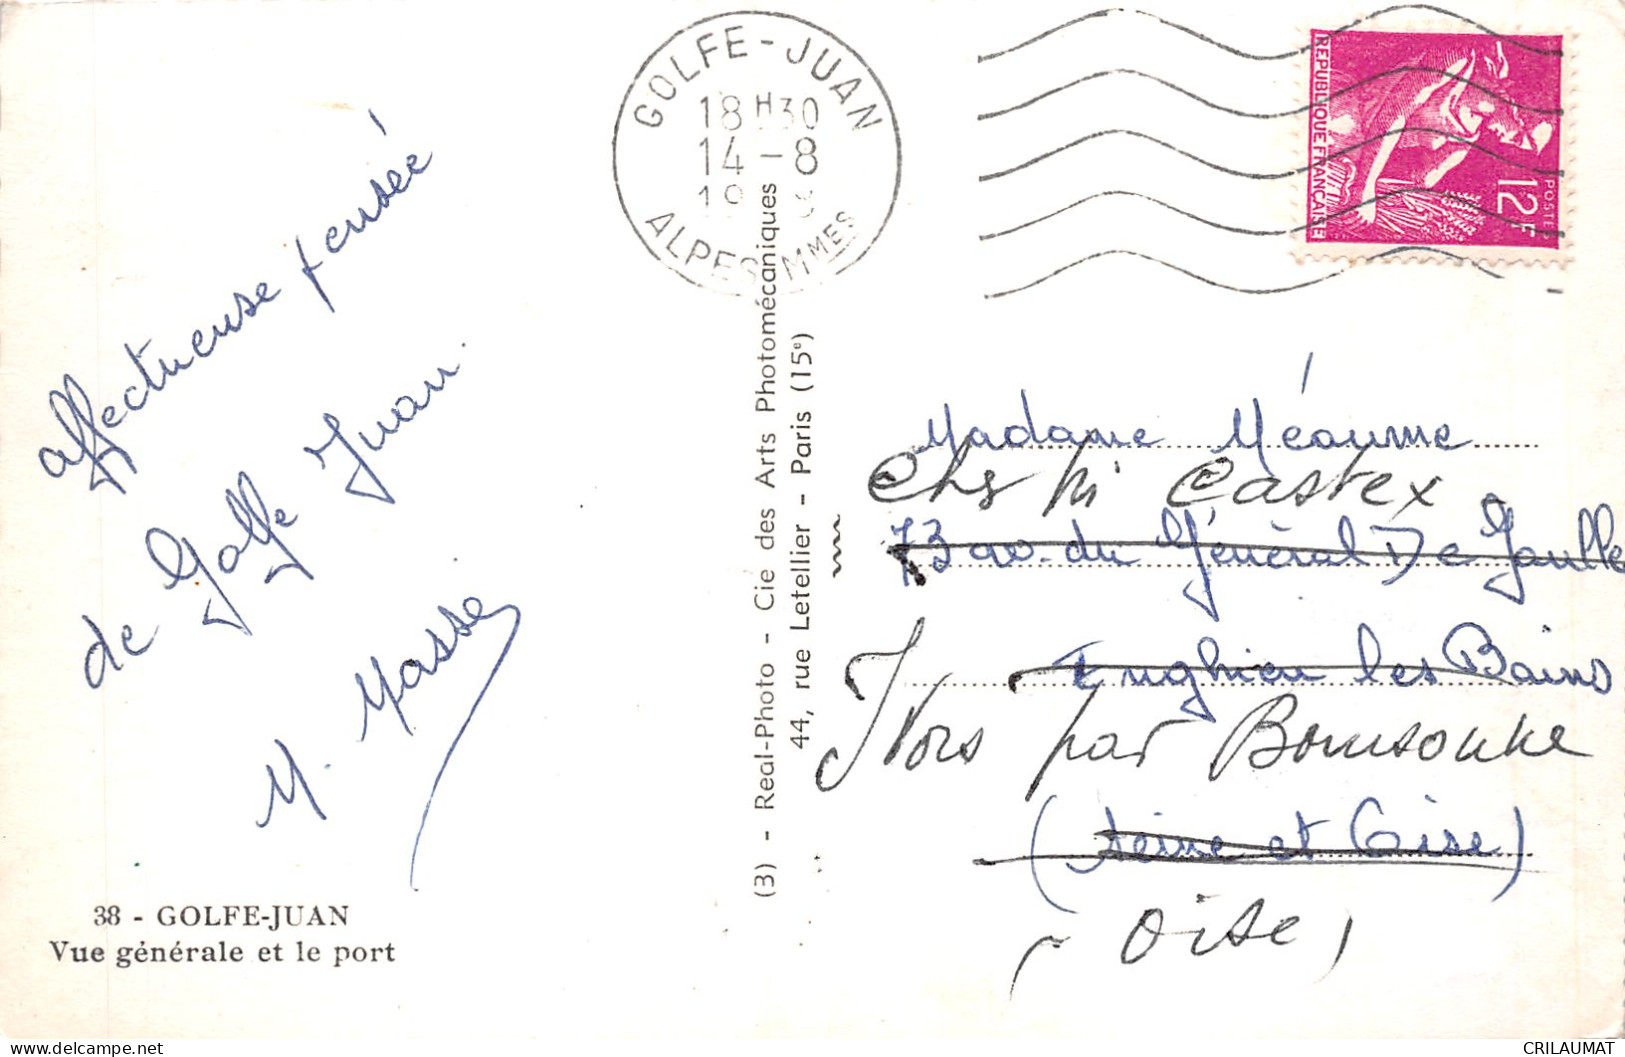 GOLFE-JUAN
18H30
14-8
19
ALPES MMES
REPUBLIQUE FRANÇAISE
POSTES
12F
affectueuse pensée
de Golfe Juan
M. Masse
38 - GOLFE-JUAN
Vue générale et le port
(3) - Real-Photo - Cie des Arts Photomécaniques
44, rue Letellier - Paris (15e)
Madame Méaume
Castex
73 av. du Général De Gaulle
Enghien les Bains
par
(Seine et Oise)
Oise
CRILAUMAT